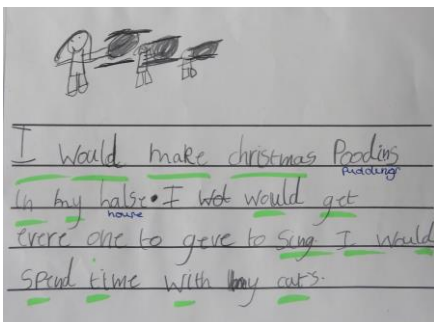 I would make christmas Poodins
puddings
in my halse. I wot would get
house
evere one to geve to sing I would
spend time with my cat's.